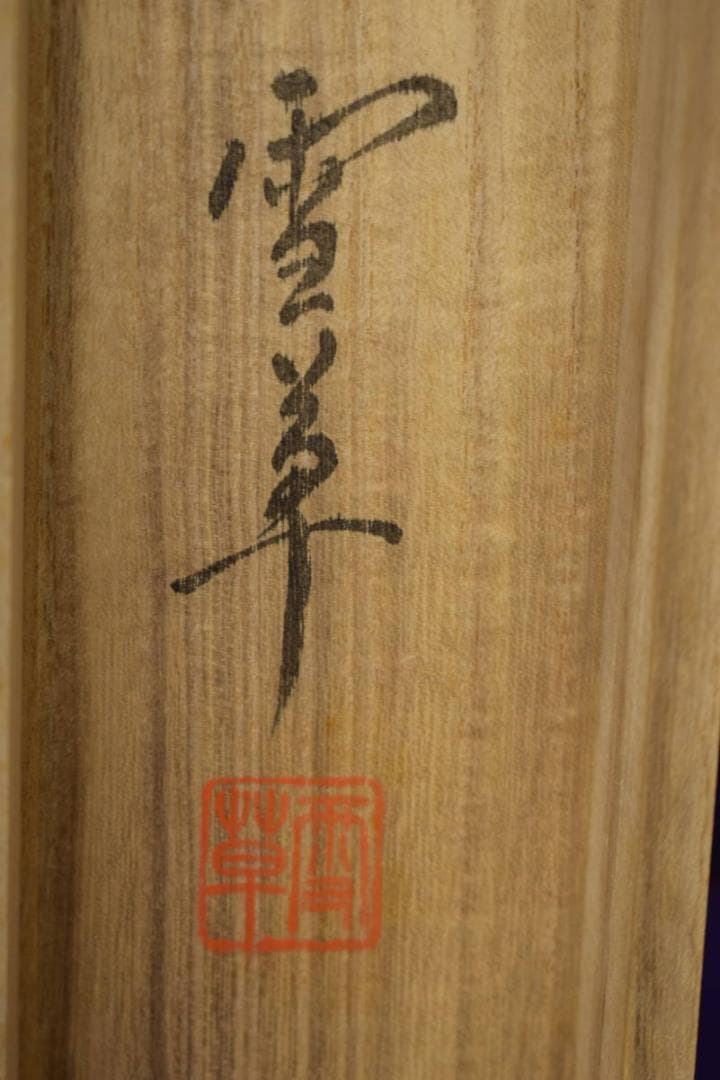 雪草
雪草